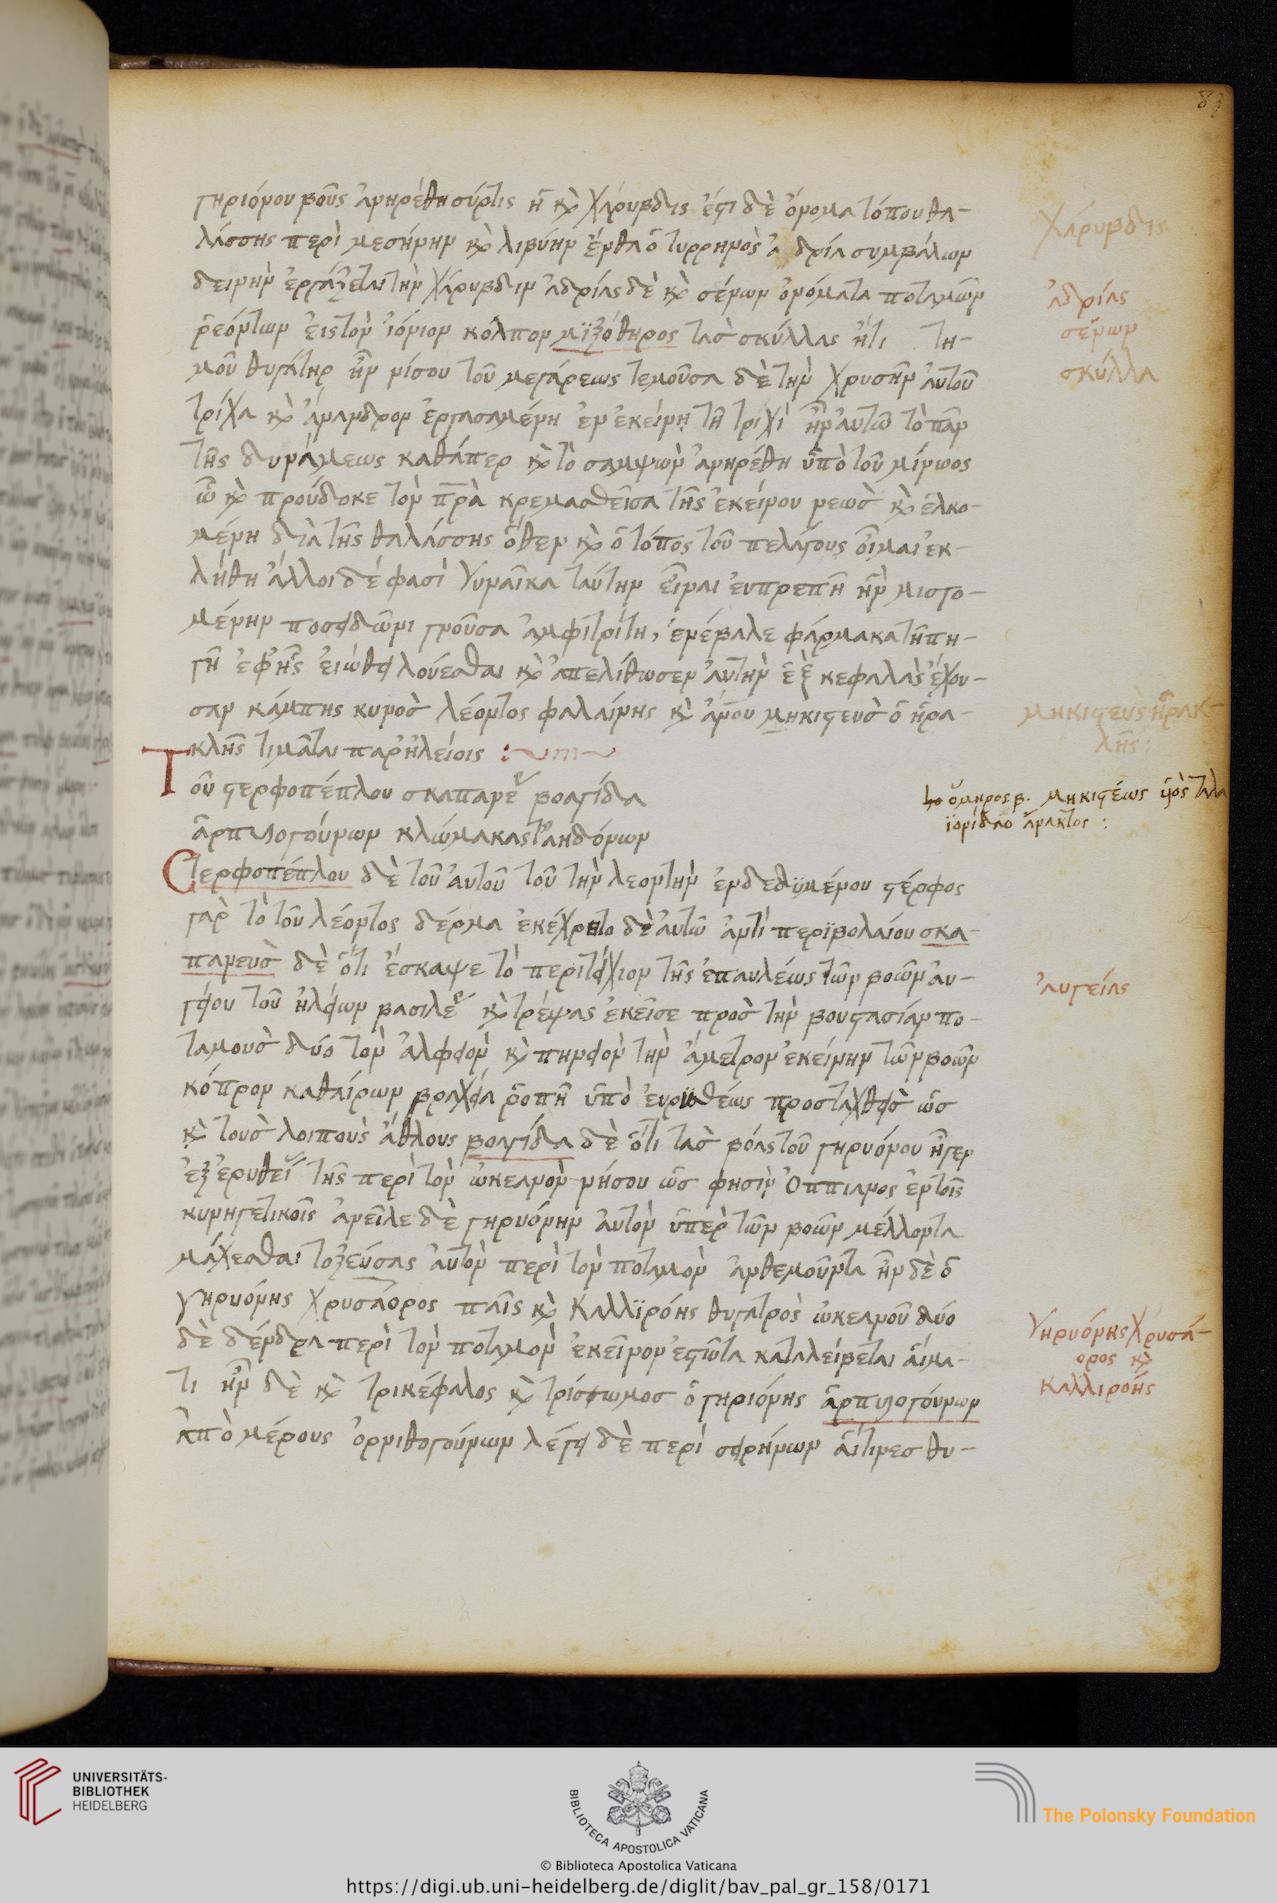 83
γηριόνου βοῦς ἀνηρέθη σύρτις ἢ κὶ χάρυβδις ἐστὶ δὲ ὄνομα τόπου θα-
λάσσης περὶ μεσήνην κὶ λιβύην ἔνθα ὁ τυρρηνὸς ἀδρία συμβάλων
δεινὴν ἐργάζεται τὴν χάρυβδιν ἀδρίας δὲ κὶ σένων ὀνόματα ποταμῶν
ῥεόντων εἰς τὸν ἰόνιον κόλπον μιξόθηρος τὰς σκύλλας ἥτι τη-
μοῦ θυγάτηρ ἦν νίσου τοῦ μεγάρεως τεμοῦσα δὲ τὴν χρυσῆν αὐτοῦ
τρίχα κὶ ἄνανδρον ἐργασαμένη ἐν ἐκείνῃ τῇ τριχὶ ἦν αὐτῶ τὸ πᾶν
τῆς δυνάμεως καθάπερ κὶ τὸ σαμψὼν ἀνηρέθη ὑπὸ τοῦ μίνωος
ὧ κὶ προύδοκε τὸν πρὰ κρεμασθεῖσα τῆς ἐκείνου νεὼς κὶ ἑλκο-
μένη διὰ τῆς θαλάσσης ὅθεν κὶ ὁ τόπος τοῦ πελάγους οἶμαι ἐκ-
λήθη ἄλλοι δέ φασὶ γυναῖκα ταύτην εἶναι εὐπρεπῆ ἣν μισγο-
μένην ποσειδῶνι γνοῦσα ἀμφιτρίτη, ἐνέβαλε φάρμακα τῇ πη-
γῇ ἐφ ἧς εἰώθει λούεσθαι κὶ ἀπελίθωσεν αὐτὴν ἓξ κεφαλὰς ἔχου-
σαν κάμπης κυνὸς λέοντος φαλαίνης κὶ ἀνου μηκιστεὺς ὁ ἡρα-
κλῆς τιμᾶται παρ ἠλείοις :
Τοῦ στερφοπέπλου σκαπανέ βοαγίδα
ἁρπυιογούνων κλώμακας τ ἀηδόνων
Στερφοπέπλου δὲ τοῦ αὐτοῦ τοῦ τὴν λεοντὴν ἐνδεδυμένου στέρφος
γὰρ τὸ τοῦ λέοντος δέρμα ἐκέχρητο δὲ αὐτῶ ἀντὶ περιβολαίου σκα-
πανεὺς δὲ ὅτι ἔσκαψε τὸ περιτείχιον τῆς ἐπαυλέως τῶν βοῶν αὐ-
γείου τοῦ ἠλείων βασιλέ κὶ τρέψας ἐκεῖσε πρὸς τὴν βουστασίαν πο-
ταμοὺς δύο τὸν ἀλφειὸν κὶ πηνειὸν τὴν ἄμετρον ἐκείνην τῶν βοῶν
κόπρον καθαίρων βραχεία ῥοπῇ ὑπὸ εὐρυσθέως προσταχθεὶς ὡς
κὶ τοὺς λοιποὺς ἄθλους βοαγίδα δὲ ὅτι τὰς βόας τοῦ γηρυόνου ἦγεν
ἐξ ἐρυθεί τῆς περὶ τὸν ὠκεανὸν νήσου ὥς φησὶν ὀππιανος ἐν τοῖς
κυνηγετικοῖς ἀνεῖλε δὲ γηρυόνην αὐτὸν ὑπὲρ τῶν βοῶν μέλλοντα
μάχεσθαι τοξεύσας αὐτὸν περὶ τὸν ποταμὸν ἀνθεμοῦντα ἦν δὲ ὁ
γηρυόνης χρυσάορος παῖς κὶ καλλιρόης θυγατρὸς ὠκεανοῦ δύο
δὲ δένδρα περὶ τὸν ποταμὸν ἐκεῖνον ἑστῶτα καταλείβεται αἵμα-
τι ἦν δὲ κὶ τρικέφαλος κὶ τρίσωμος ὁ γηριόνης ἁρπυιογούνων
ἀπὸ μέρους ὀρνιθογούνων λέγει δὲ περὶ σειρήνων αἵτινες θυ-
χάρυβδις
ἀδρίας
σένων
σκύλλα
μηκιστεὺς ἡρακ-
λῆς:
ὅμηρος β. μηκιστέως υἱὸς ταλα
ϊονίδαο ἄνακτος :
αὐγείας
γηρυόνης χρυσά-
ορος κὶ
καλλιρόης
UNIVERSITÄTS-
BIBLIOTHEK
HEIDELBERG
BIBLIOTECA APOSTOLICA VATICANA
The Polonsky Foundation
© Biblioteca Apostolica Vaticana
https://digi.ub.uni-heidelberg.de/diglit/bav_pal_gr_158/0171